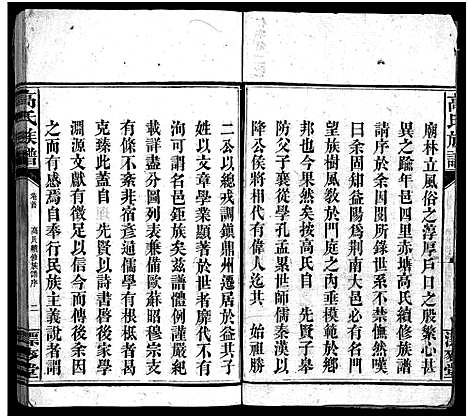 高氏族譜
廟林立風俗之淳厚戶口之殷繁心甚
異之踰年邑四里赤塘高氏續修族譜
請序於余因閱所紀前
曰余固知益陽為荆南大邑而高氏又
望族樹風教於門庭之內垂模範於鄉
邦也今果然矣按高氏自 先賢子皋
防父子襄從學孔孟累世師儒秦漢以
降公侯將相代有偉人迄其 始祖勝
二公以總戎調鎮鼎州遷居於益其子
姓以文章學業顯著於世者靡代不有
洵可指之名邑鉅族矣茲譜體例謹嚴紀
載詳盡分圖列表秉備歐蘇昭穆宗支
有條不紊非宿彥通儒學有根柢者不
克臻此蓋自 先賢以詩書啓後家學
淵源文獻有徵足以信今而傳後余因
之而有感焉自奉行民族主義說者謂
高氏族譜
卷首
高氏續修族譜序
二
漂麥堂